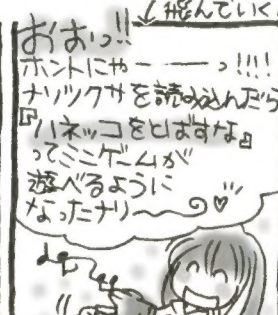 飛んでいく
おおっ!!
ホントにゃーーっ!!!!
ナゾックサを読み込んだら
『ハネッコをとばすな』
ってミニゲームが
遊べるように
なったナリ〜〜♡